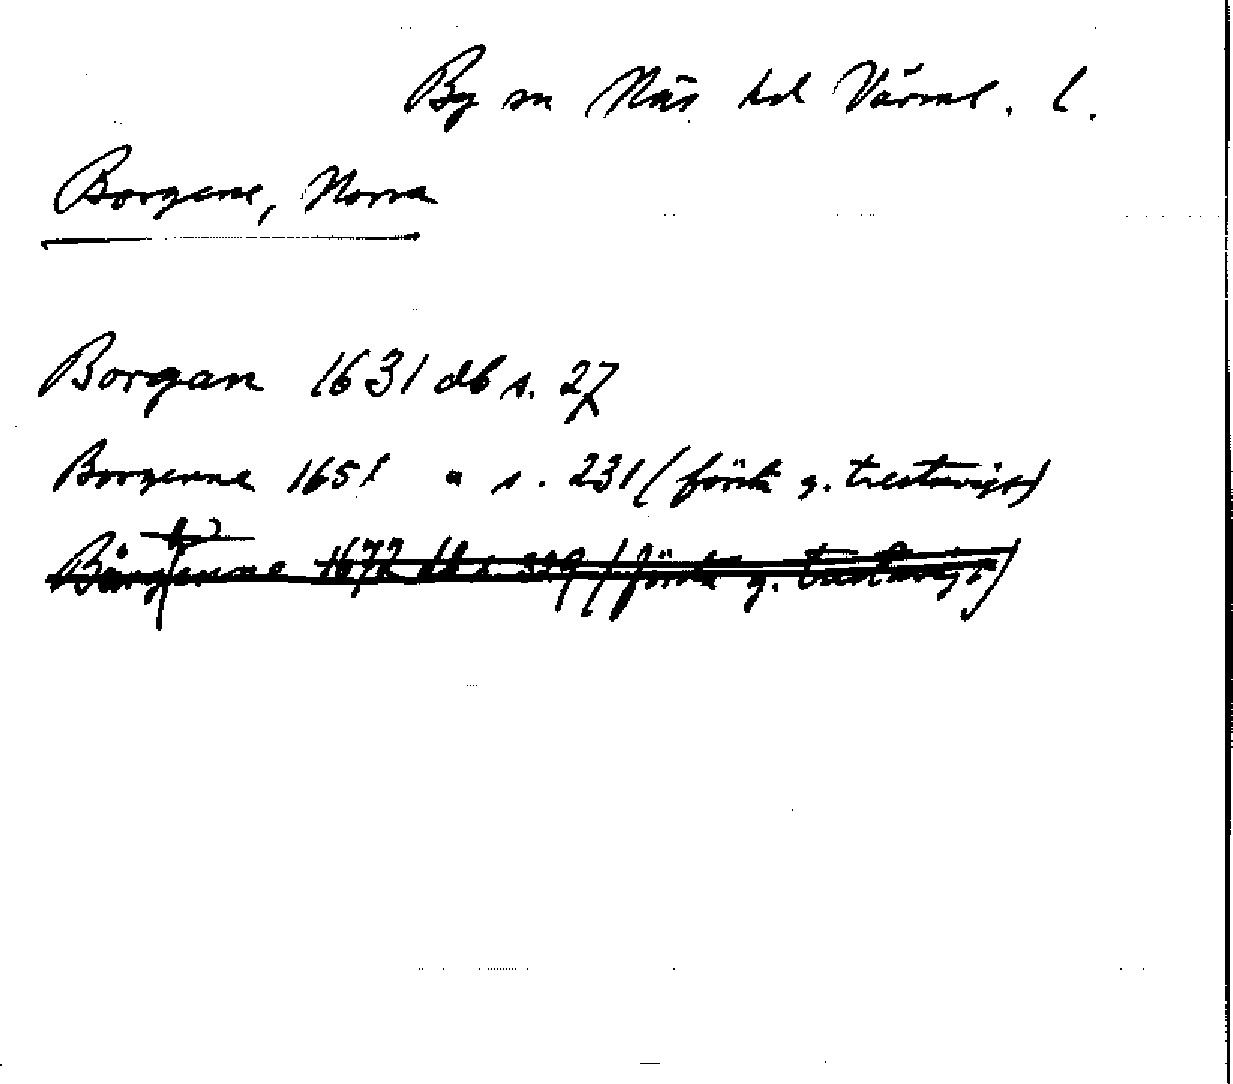 By sn Näs hd Värml. l.
Borgene, Norra
Borgan 1631 db s. 27
Borgenne 1651 " s. 231 (förtk g. trestavigt)
Bårgenne 1672 db s. 319 (förtk g. trestavigt)